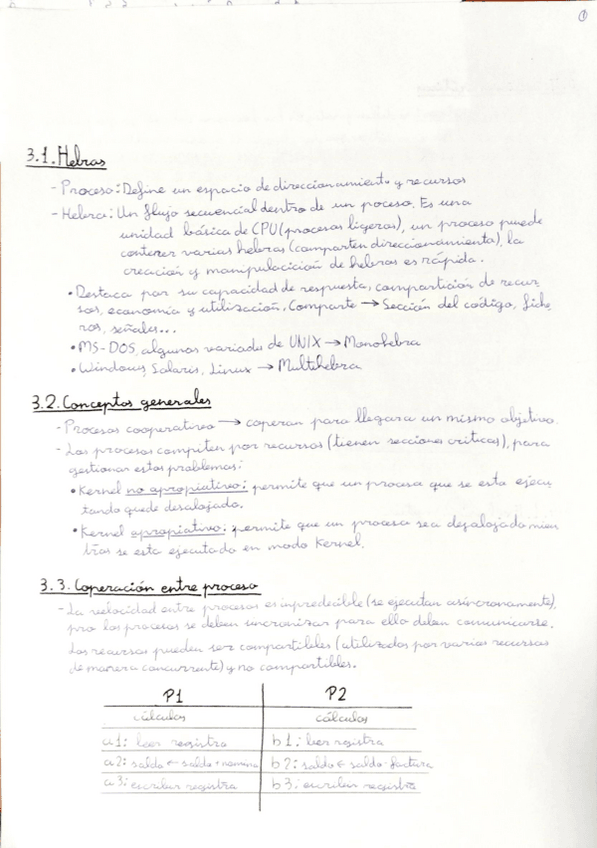 ①
3.1. Hebras
- Proceso: Define un espacio de direccionamiento y recursos
- Hebra: Un flujo secuencial dentro de un poceso. Es una
unidad básica de CPU (procesos ligeros), un proceso puede
contener varias hebras (comparten direccionamiento), la
creación y manipulacición de hebras es rápida.
• Destaca por su capacidad de respuesta, compartición de recur
sos, economía y utilización. Comparte → Sección del código, fiche
ros, señales...
• MS-DOS, algunas variades de UNIX → Monohebra
• Windows, Solaris, Linux → Multihebra
3.2. Conceptos generales
- Procesos cooperativos → coperan para llegar a un mismo objetivo.
- Los procesos compiten por recursos (tienen secciones críticas), para
gestionar estos problemas:
• Kernel no apropiativo: permite que un proceso que se esta ejecu
tando quede desalojado.
• Kernel apropiativo: permite que un proceso sea desalojado mien
tras se esta ejecutado en modo Kernel.
3.3. Coperación entre proceso
- La velocidad entre procesos es inpredecible (se ejecutan asíncronamente),
pro los procesos se deben sincronizar para ello deben comunicarse.
Los recursos pueden ser compartibles (utilizados por varios recursos
de manera concurrente) y no compartibles.
P1 P2
cálculos cálculos
a1: leer registro b1: leer registro
a2: saldo ← saldo + nomina b2: saldo ← saldo - factura
a3: escribir registro b3: escribir registro